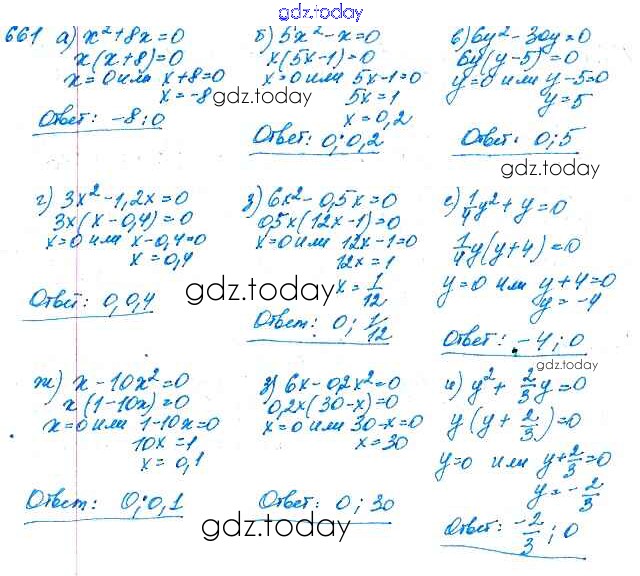 gdz.today
661 а) x²+8x=0
x(x+8)=0
x=0 или x+8=0
x=-8
gdz.today
Ответ: -8; 0
б) 5x²-x=0
x(5x-1)=0
x=0 или 5x-1=0
5x=1
x=0,2
Ответ: 0; 0,2
в) 6y²-30y=0
6y(y-5)=0
y=0 или y-5=0
y=5
Ответ: 0; 5
gdz.today
г) 3x²-1,2x=0
3x(x-0,4)=0
x=0 или x-0,4=0
x=0,4
Ответ: 0, 0,4
gdz.today
д) 6x²-0,5x=0
0,5x(12x-1)=0
x=0 или 12x-1=0
12x=1
x=1/12
Ответ: 0; 1/12
е) 1/4y²+y=0
1/4y(y+4)=0
y=0 или y+4=0
y=-4
Ответ: -4; 0
gdz.today
ж) x-10x²=0
x(1-10x)=0
x=0 или 1-10x=0
10x=1
x=0,1
Ответ: 0; 0,1
з) 6x-0,2x²=0
0,2x(30-x)=0
x=0 или 30-x=0
x=30
Ответ: 0; 30
gdz.today
и) y²+2/3y=0
y(y+2/3)=0
y=0 или y+2/3=0
y=-2/3
Ответ: -2/3; 0